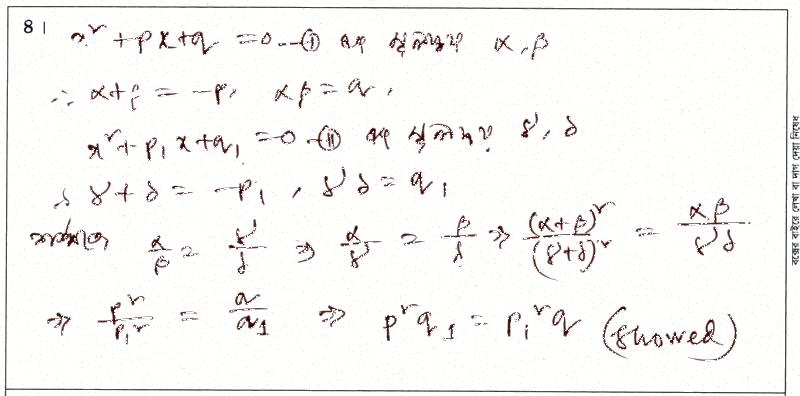 8।
x² + px + q = 0 --- (i) এর মূলদ্বয় α, β
∴ α + β = -p, αβ = q,
x² + p₁x + q₁ = 0 --- (ii) এর মূলদ্বয় γ, δ
∴ γ + δ = -p₁, γδ = q₁
শর্তমতে α/β = γ/δ ⇒ α/γ = β/δ ⇒ (α+β)²/(γ+δ)² = αβ/γδ
⇒ p²/p₁² = q/q₁ ⇒ p²q₁ = p₁²q (showed)
বক্সের বাইরে লেখা বা দাগ দেয়া নিষেধ